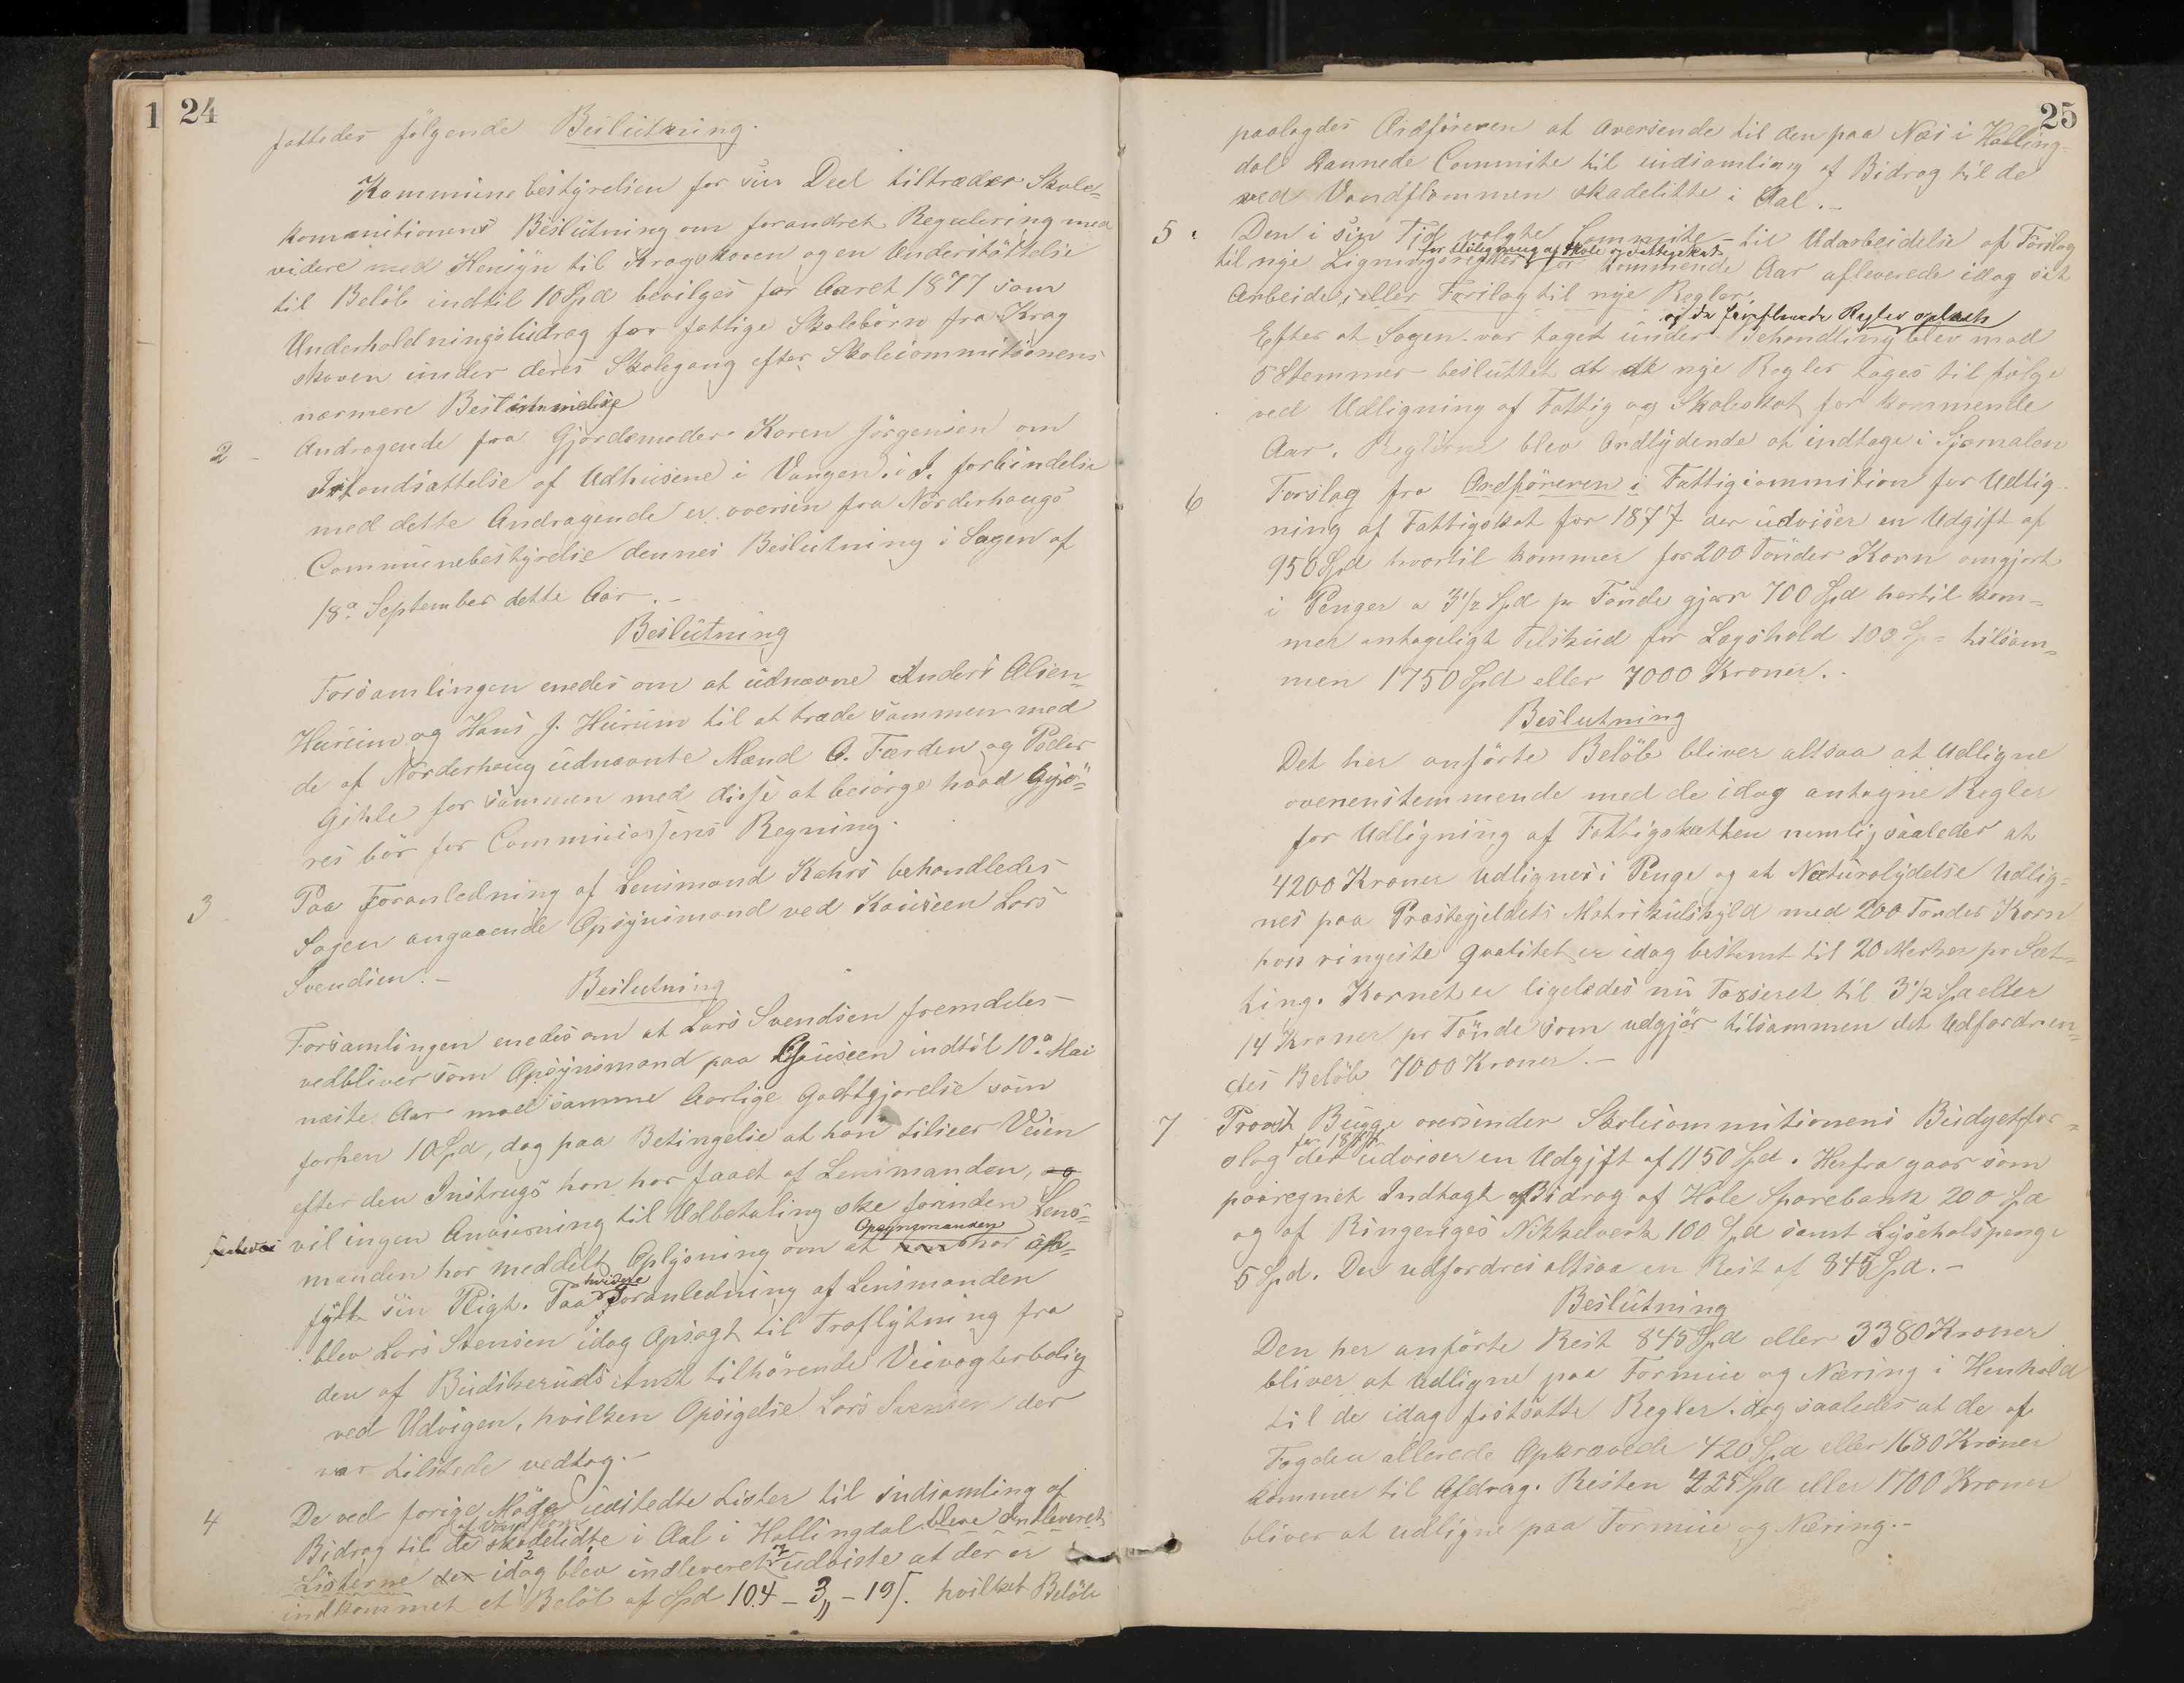 1 24
fattedes følgende Beslutning.
Kommunebestyrelsen for sin Deel tiltræder Skole-
kommitionens Beslutning om forandret Regulering med
videre med Hensyn til Kragskoven og en Understøttelse
til Beløb indtil 10 Spd bevilges for Aaret 1877 som
Underholdningsbidrag for fattige Skolebørn fra Krag
skoven under deres Skolegang efter Skolecommitionens
nærmere Bestemmelse
2 - Andragende fra Gjordemoder Karen Jørgensen om
Istandsættelse af Udhusene i Vangen. i F. forbindelse
med dette Andragende er oversen fra Norderhougs
Communebestyrelse dennes Beslutning i Sagen af
18de September dette Aar. -
Beslutning
Forsamlingen enedes om at udnævne Anders Olsen
Hurum og Hans J. Hurum til at træde sammen med
de af Norderhoug udnævnte Mænd A. Færden og Peder
Gihle for sammen med disse at besørge hvad Gjø=
res bør for Commiciossens Regning.
3 Paa Foranledning af Lensmand Kahrs behandledes
Sagen angaaende Opsynsmand ved Kaiseen Lars
Svendsen. -
Beslutning
Forsamlingen enedes om at Lars Svendsen fremdeles
vedbliver som Opsynsmand paa Chauseen indtil 10de Mai
næste Aar mod samme Aarlige Godtgjørelse som
forhen 10 Spd, dog paa Betingelse at han tilseer Veien
efter den Instrugs han har faaet af Lensmanden, og
vil ingen Anvisning til Udbetaling ske forinden Lens=
manden har meddelt Oplysning om at han Opsynsmanden har op=
fylt sin Pligt. Paa hvidere Foranledning af Lensmanden
blev Lars Svensen idag Opsagt til Fraflytning fra
den af Buskeruds Amt tilhørende Veivogterbolig
ved Udvigen, hvilken Opsigelse Lars Svensen der
var tilstede vedtog. -
4 De ved forige Møde udstedte Lister til indsamling af
Bidrag til de af Vandflom skadelidte i Aal i Hallingdal bleve Indleveret
Listerne der idag blev indleveret udviste at der er
indkommet et Beløb af Spd 104 - 3„ - 19 s. hvilket Beløb
25
paalagdes Ordføreren at Oversende til den paa Næs i Halling-
dal Dannede Committe til indsamling af Bidrag til de
ved Vandflommen skadelitte i Aal. -
5. Den i sin Tid valgte Committe til Udarbeidelse af Forslag
til nye Ligningsregler for Udligning af Skole og Fattigskat for kommende Aar afleverede idag sit
Arbeide, eller Forslag til nye Regler.
Efter at Sagen var taget under Behandling og de forefindende Regler oplæst blev med
5 Stemmer besluttet at de nye Regler tages til følge
ved Udligning af Fattig og Skoleskat for kommende
Aar. Reglerne blev Ordlydende at indtage i Sjornalen
6 Forslag fra Ordføreren i Fattigcommition for Udlig-
ning af Fattigskat for 1877 der udviser en Udgift af
950 Spd hvortil kommer for 200 Tønder Korn omgjort
i Penger a 3 1/2 Spd pr Tønde gjør 700 Spd hertil kom=
mer antageligt Tilskud for Lægshold 100 Sp= tilsam=
men 1750 Spd eller 7000 Kroner. -
Beslutning
Det her anførte Beløb bliver altsaa at Udligne
overenstemmende med de idag antagne Regler
for Udligning af Fattigskatten nemlig saaledes at
4200 Kroner Udlignes i Penge og at Naturalydelse Udlig=
nes paa Prestegjeldets Matrikulskyld med 200 Tønder Korn
hvis ringeste Qvalitet er idag bestemt til 20 Merker pr Sæt=
ting. Kornet er ligeledes nu Taxseret til 3 1/2 Spd eller
14 Kroner pr Tønde som udgjør tilsammen det Udfordren=
des Beløb 7000 Kroner. -
7 Provst Bugge oversender Skolecommitionens Budgetfor=
slag for 1877 der udviser en Udgift af 1150 Spd. Herfra gaar som
paaregnet Indtægt af Bidrag af Hole Sparebank 200 Spd
og af Ringeriges Nikkelverk 100 Spd samt Lyseholspenge
5 Spd. Der udfordres altsaa en Rest af 845 Spd. -
Beslutning
Den her anførte Rest 845 Spd eller 3380 Kroner
bliver at Udligne paa Formue og Næring i Henhold
til de idag fastsatte Regler. dog saaledes at de af
Fogden allerede Opkrævede 420 Spd eller 1680 Kroner
kommer til Afdrag. Resten 425 Spd eller 1700 Kroner
bliver at udligne paa Formue og Næring. -